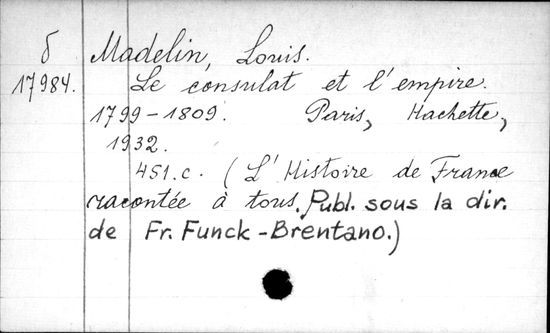 б Madelin, Louis.
17984. Le consulat et l'empire.
1799-1809. Paris, Hachette,
1932.
451.c. (L'Histoire de France
racontée à tous. Publ. sous la dir.
de Fr. Funck-Brentano.)